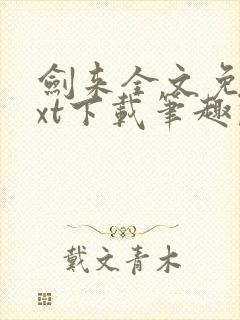 劍来全文免
xt下載筆趣
戴文青木